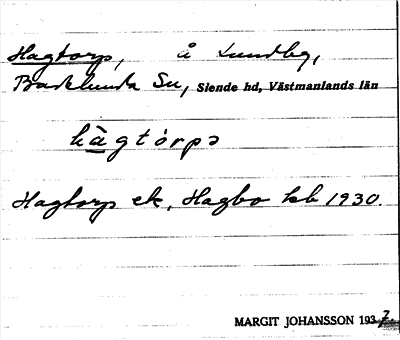 Hagtorp, å Lundby,
Badelunda Sn, Siende hd, Västmanlands län
hàgtórpə
Hagtorp ek, Hagbo kb 1930.
MARGIT JOHANSSON 1937.